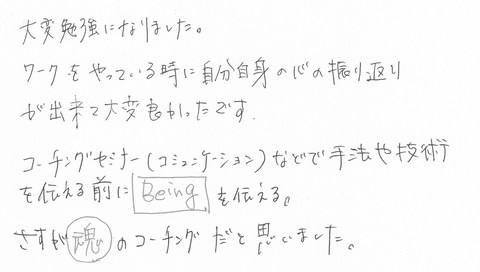 大変勉強になりました。
ワークをやっている時に自分自身の心の振り返り
が出来て大変良かったです.
コーチングセミナー(コミュニケーション)などで手法や技術
を伝える前に Being を伝える。
さすが魂のコーチングだと思いました。